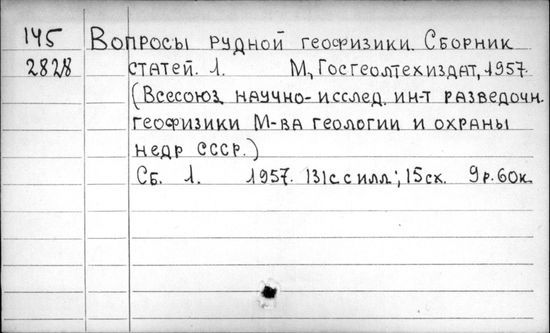 145 Вопросы рудной геофизики. Сборник
2828 статей. 1. М., Госгеолтехиздат, 1957.
(Всесоюз. научно-исслед. ин-т разведочн.
геофизики М-ва геологии и охраны
недр СССР.)
Сб. 1. 1957. 131с. с илл.; 15сх. 9р. 60к.